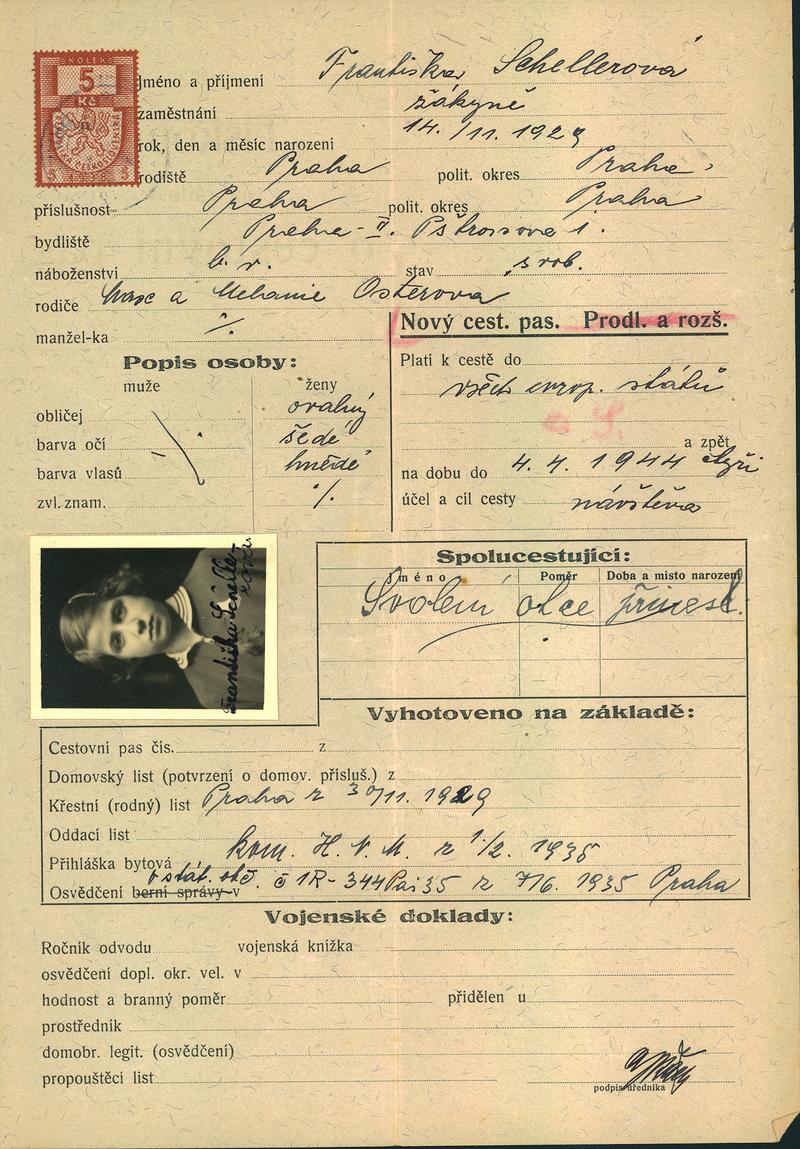 KOLEK
5
Kč
5 1938 5
Jméno a příjmení Františka Schellerová
zaměstnání žákyně
rok, den a měsíc narození 14./11. 1929
rodiště Praha polit. okres Praha
příslušnost Praha polit. okres Praha
bydliště Praha-II. Pštrossova 1.
náboženství b. v. stav svob.
rodiče a Melanie Osterova
manžel-ka ./.
Nový cest. pas. Prodl. a rozš.
Popis osoby:
muže ženy
obličej oválný
barva očí šedé
barva vlasů hnědé
zvl. znam. ./.
Platí k cestě do
všech evrop. států
a zpět
na dobu do 4. 4. 1944 čtyři
účel a cíl cesty návštěva
Františka Scheller-
ová
Spolucestující:
Jméno Poměr Doba a místo narození
Svolení otce přinesl.
Vyhotoveno na základě:
Cestovní pas čís. z
Domovský list (potvrzení o domov. přísluš.) z
Křestní (rodný) list Praha z 30/11. 1929
Oddací list
Přihláška bytová kom. H. N. M. z 1/2. 1935
Osvědčení berní správy v o stát. obč. č 1R-344 Pai 35 z 7/6. 1935 Praha
Vojenské doklady:
Ročník odvodu vojenská knížka
osvědčení dopl. okr. vel. v
hodnost a branný poměr přidělen u
prostředník
domobr. legit. (osvědčení)
propouštěcí list
podpis úředníka